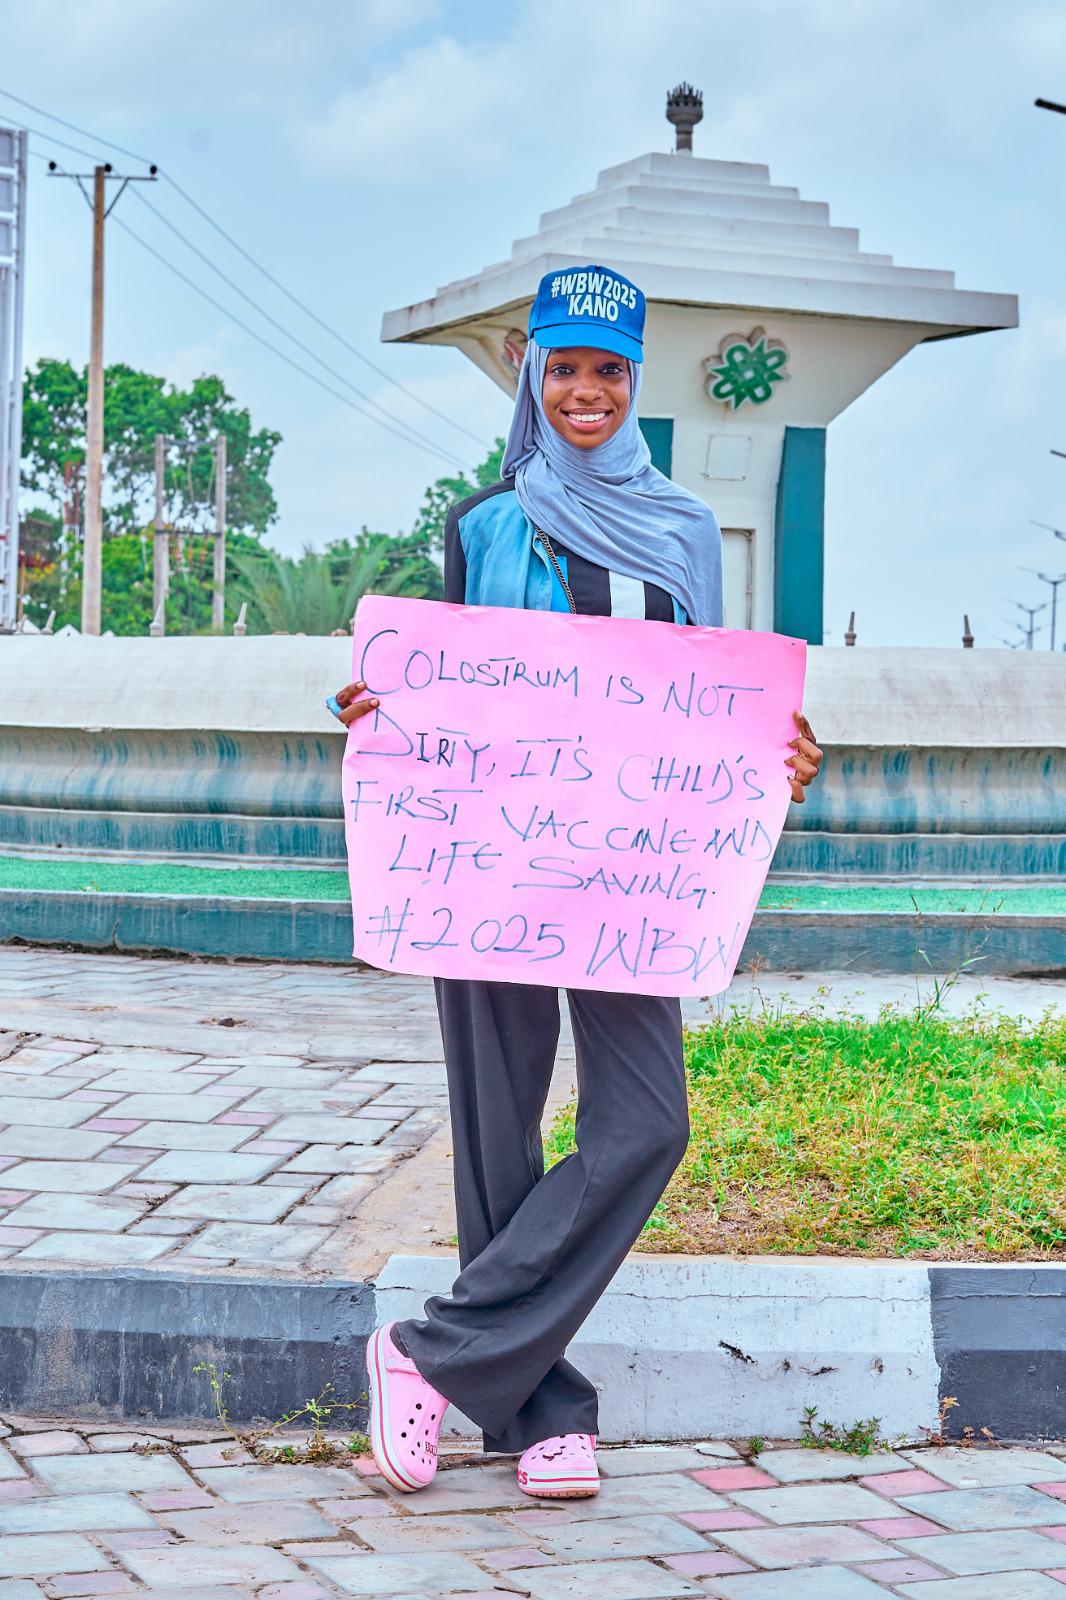 #WBW2025
KANO
COLOSTRUM IS NOT
DIRTY, IT'S CHILD'S
FIRST VACCINE AND
LIFE SAVING.
#2025 WBW